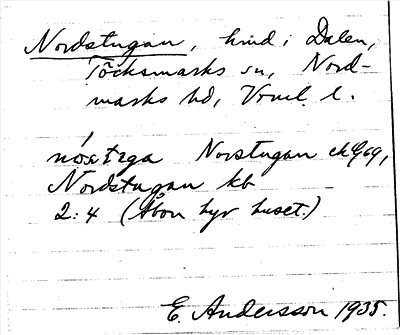 Nordstugan, hmd i Dalen,
Töcksmarks sn, Nord-
marks hd, Vrml. l.
Norstugan ek G69,
Nordstugan kb
2:4 (Åbon hyr huset.)
E. Andersson 1935.